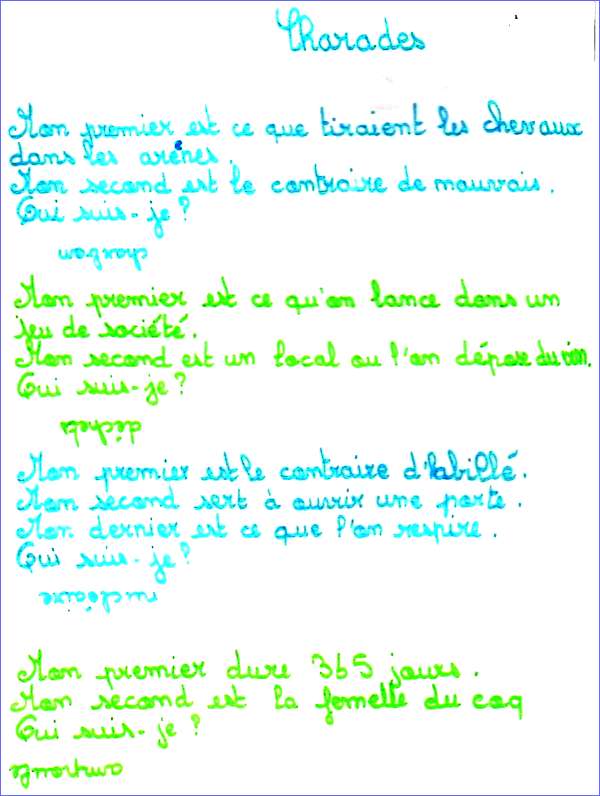 Charades
Mon premier est ce que tiraient les chevaux
dans les arènes.
Mon second est le contraire de mauvais.
Qui suis-je ?
charbon
Mon premier est ce qu'on lance dans un
jeu de société.
Mon second est un local ou l'on dépose du vin.
Qui suis-je ?
déchet
Mon premier est le contraire d'habillé.
Mon second sert à ouvrir une porte.
Mon dernier est ce que l'on respire.
Qui suis-je ?
nucléaire
Mon premier dure 365 jours.
Mon second est la femelle du coq
Qui suis-je ?
ampoule